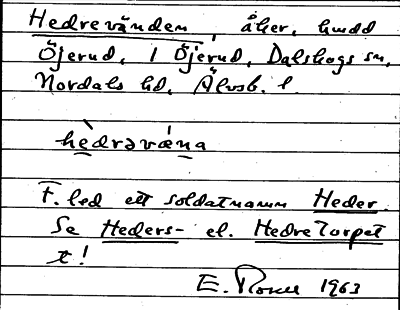 Hedrevänden, åker, hmdd
Öjerud, 1 Öjerud, Dalskogs sn,
Nordals hd, Älvsb. l.
hèdrəvǽna
F. led ett soldatnamn Heder.
Se Heders- el. Hedretorpet
t!
E. 1963